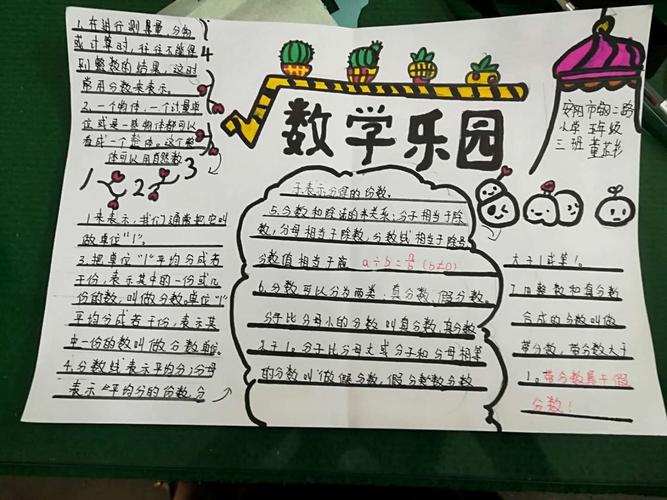 数学乐园
安阳市钢二路
小学 五年级
三班
1.在进行测量、分物
或计算时,往往不能得
到整数的结果,这时
常用分数来表示。
2.一个物体、一个计量单
位或是一些物体都可以
看成一个整体。这个整
体可以用自然数
1
2
3
4
1来表示,我们通常把它叫
做单位"1"。
3.把单位"1"平均分成若
干份,表示其中的一份或几
份的数,叫做分数。单位"1"
平均分成若干份,表示其
中一份的数叫做分数单位。
4.分数线表示平均分;分母
表示"平均分的份数,分
子表示分得的份数。
5.分数和除法的关系:分子相当于除
数,分母相当于除数,分数线相当于除号
分数值相当于商 a÷b=a/b (b≠0)
6.分数可以分为两类:真分数,假分数。
分子比分母小的分数叫真分数,真分数
之于1。分子比分母大或分子和分母相等
的分数叫做假分数,假分数分数
大于1或等1。
7.由整数和真分数
合成的分数叫做
带分数,带分数大于
1。带分数属于假
分数!